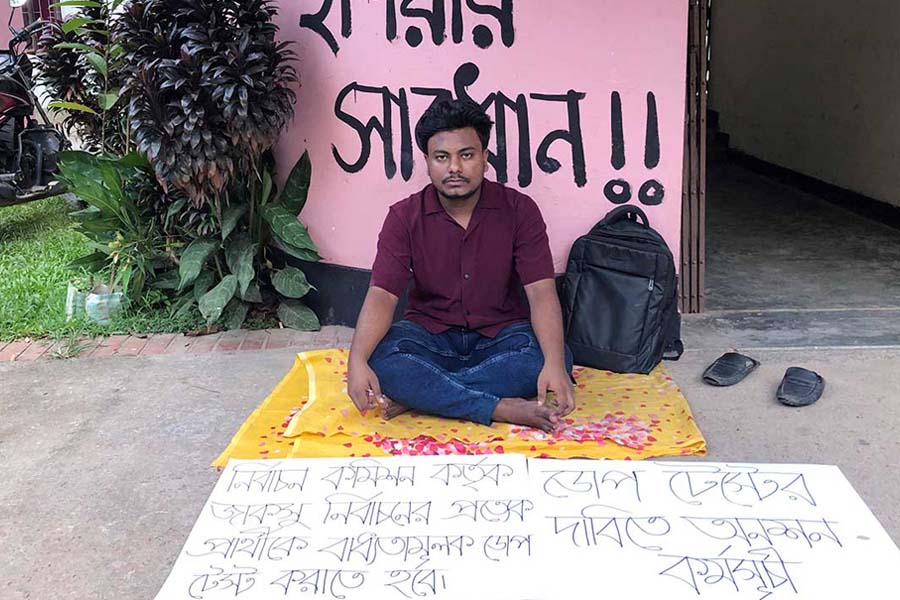 সাবধান!!
নির্বাচন কমিশন কর্তৃক
জাকসু নির্বাচনের প্রত্যেক
প্রার্থীকে বাধ্যতামূলক ডোপ
টেস্ট করাতে হবে।
ডোপ টেস্টের
দাবিতে অনশন
কর্মসূচী